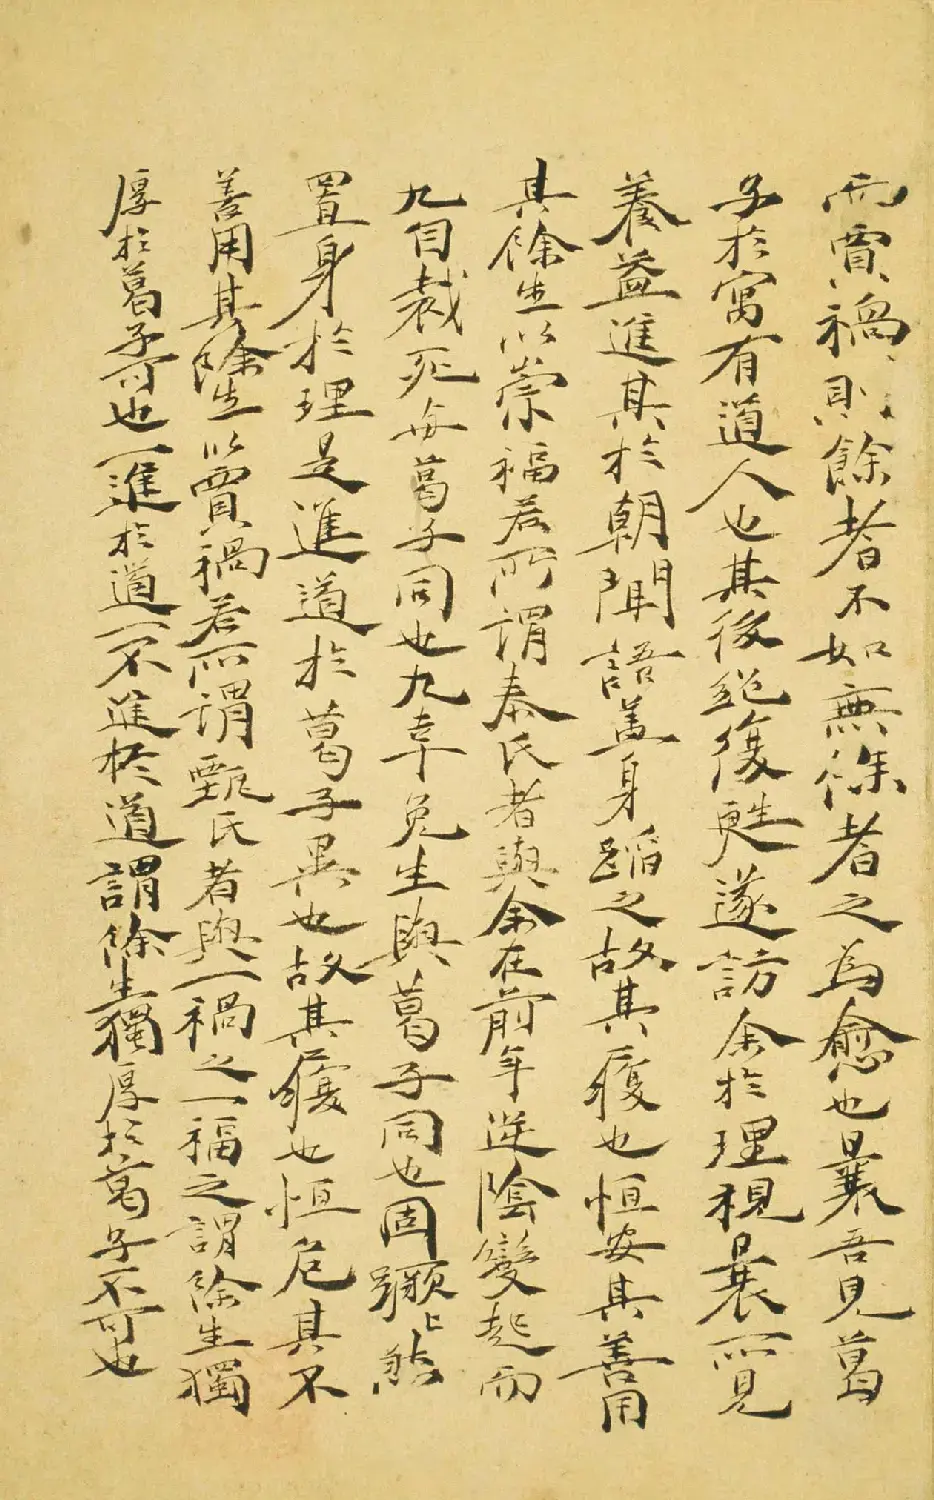 而賈禍則餘者不如無餘者之為愈也曩吾見葛
子於寓有道人也其後絕復甦遂訪余於理視曩所見
養益進其於朝聞語蓋身蹈之故其履也恒安其善用
其餘生以崇福若所謂秦氏者與余在前年逆陰變起而
九自裁死每葛子同也九幸免生與葛子同也固
置身於理是進道於葛子異也故其履也恒危其不
善用其餘生以賈禍若所謂甄氏者與一禍之一福之謂餘生獨
厚於葛子可也一進於道一不進於道謂餘生獨厚於葛子不可也